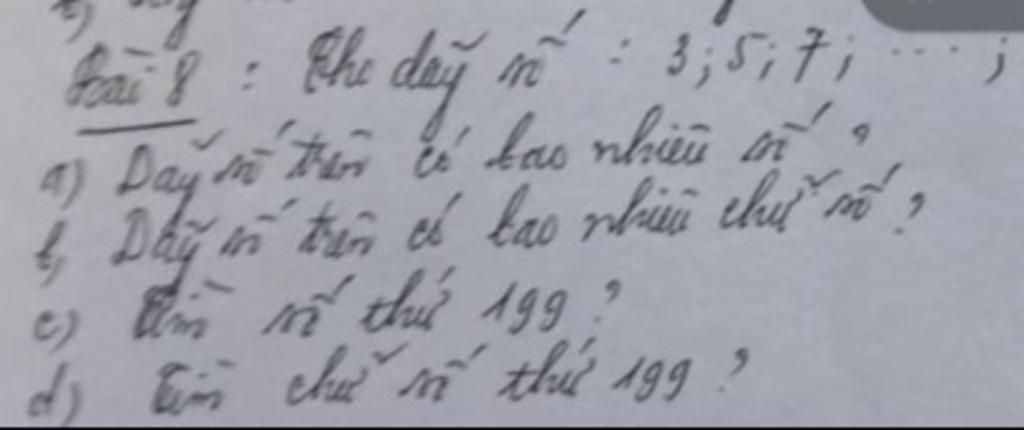 Bài 8 : Cho dãy số : 3; 5; 7; ....;
a) Dãy số trên có bao nhiêu số ?
b, Dãy số trên có bao nhiêu chữ số ?
c) Tìm số thứ 199 ?
d) Tìm chữ số thứ 199 ?